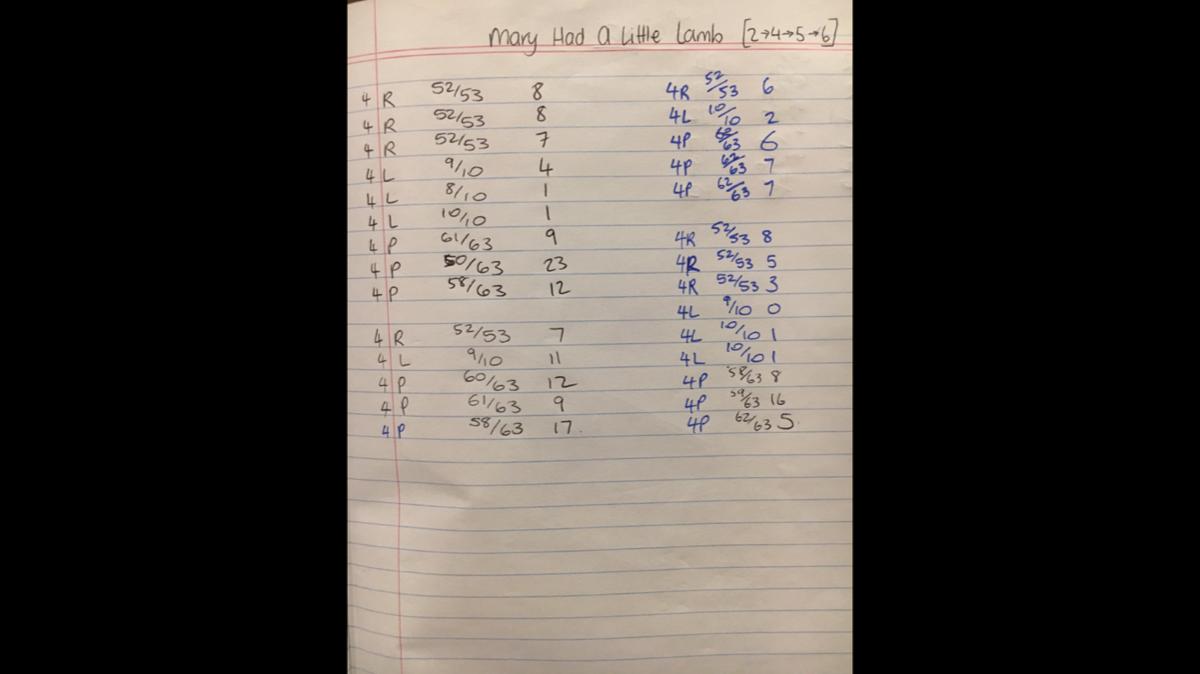 Mary Had A Little Lamb [2→4→5→6]
4 R 52/53 8
4 R 52/53 8
4 R 52/53 7
4 L 9/10 4
4 L 8/10 1
4 L 10/10 1
4 P 61/63 9
4 P 50/63 23
4 P 58/63 12
4 R 52/53 7
4 L 9/10 11
4 P 60/63 12
4 P 61/63 9
4 P 58/63 17.
4R 52/53 6
4L 10/10 2
4P /63 6
4P 62/63 7
4P 62/63 7
4R 52/53 8
4R 52/53 5
4R 52/53 3
4L 9/10 0
4L 10/10 1
4L 10/10 1
4P 58/63 8
4P 59/63 16
4P 62/63 5.